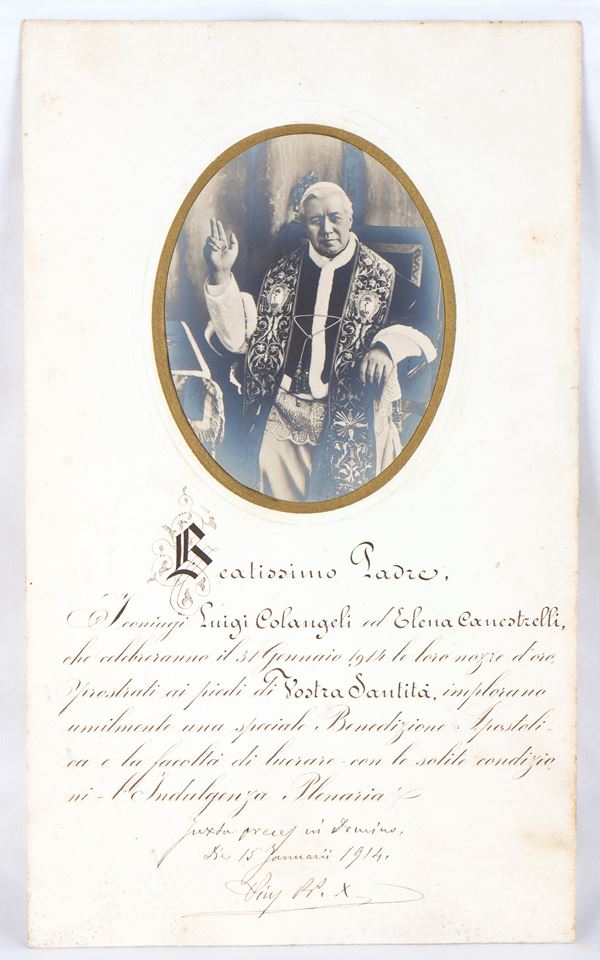 Beatissimo Padre,
I coniugi Luigi Colangeli ed Elena Canestrelli,
che celebreranno il 31 Gennaio 1914 le loro nozze d'oro,
prostrati ai piedi di Vostra Santità, implorano
umilmente una speciale Benedizione Apostoli-
ca e la facoltà di lucrare - con le solite condizio
ni - l'Indulgenza Plenaria
Juxta preces in Domino.
Die 15 Januarii 1914.
Pius PP. X